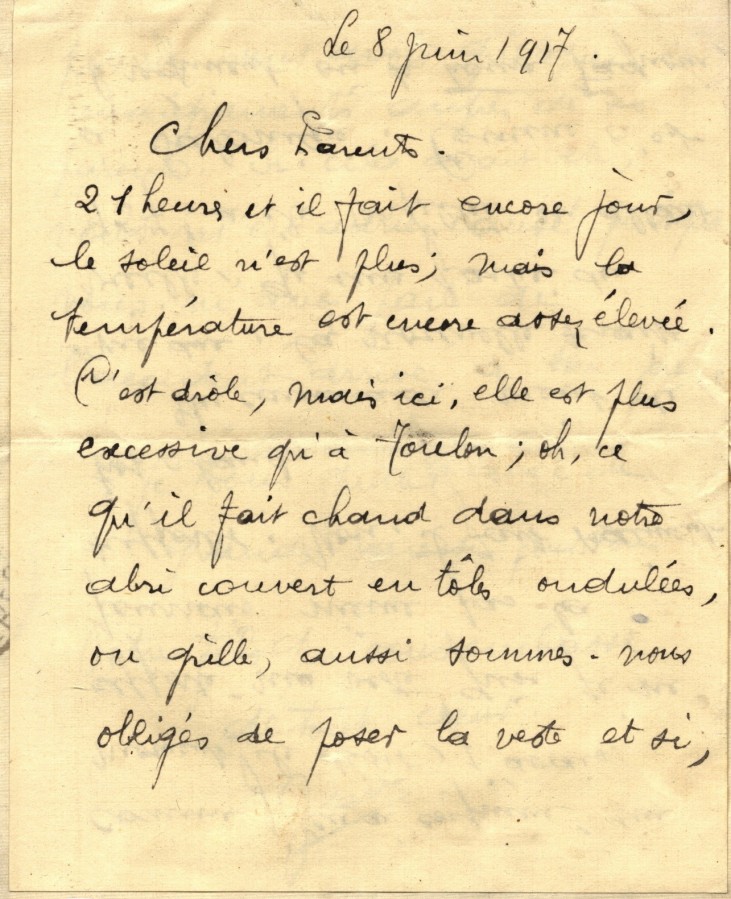 Le 8 juin 1917.
Chers Parents.
21 heures et il fait encore jour,
le soleil n'est plus; mais la
température est encore assez élevée.
C'est drôle, mais ici, elle est plus
excessive qu'à Toulon; oh, ce
qu'il fait chaud dans notre
abri couvert en tôles ondulées,
on grille, aussi sommes-nous
obligés de poser la veste et si,